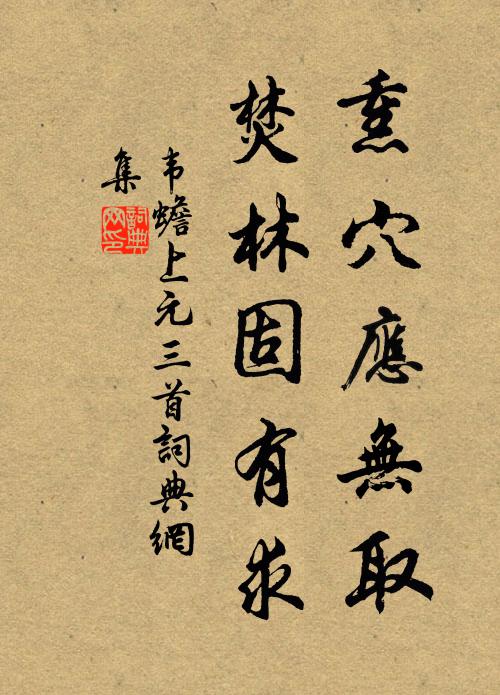 熏穴應無取
焚林固有求
韦蟾上元三首詞典網
集
詞典网印